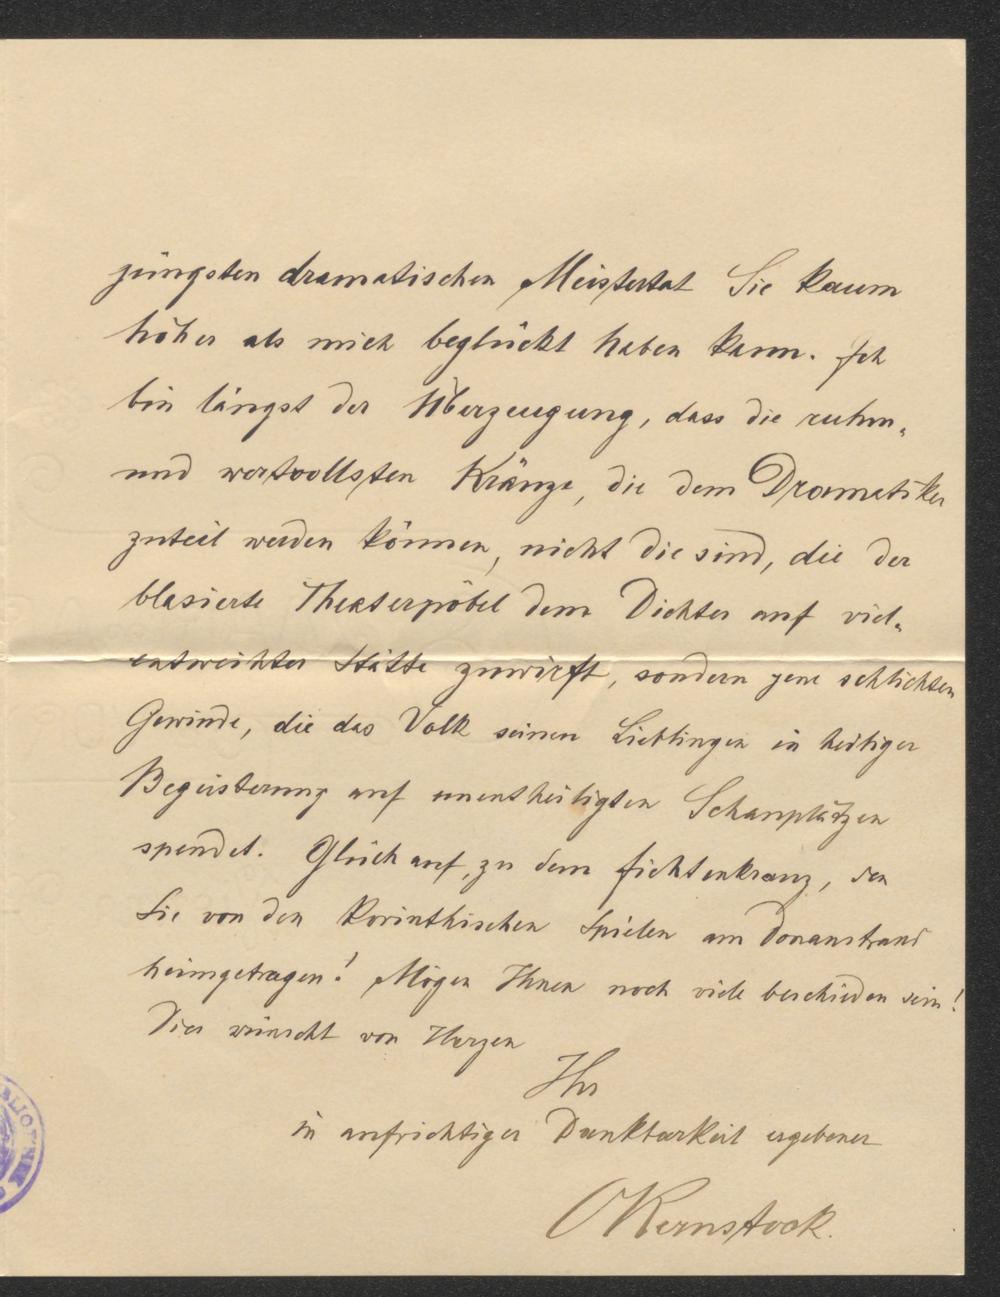 jüngsten dramatischen Meistertat Sie kaum
höher als mich beglückt haben kann. Ich
bin längst der Überzeugung, dass die ruhm-
und wertvollsten Kränze, die dem Dramatiker
zuteil werden können, nicht die sind, die der
blasierte Theaterpöbel dem Dichter auf viel-
entweihter Stätte zuwirft, sondern jene schlichten
Gewinde, die das Volk seinen Lieblingen in heiliger
Begeisterung auf unentheiligten Schauplätzen
spendet. Glück auf, zu dem Fichtenkranz, den
Sie von den Korinthischen Spielen am Donaustrand
heimgetragen! Mögen Ihnen noch viele beschieden sein!
Dies wünscht von Herzen
Ihr
in aufrichtiger Dankbarkeit ergebener
OKernstock.